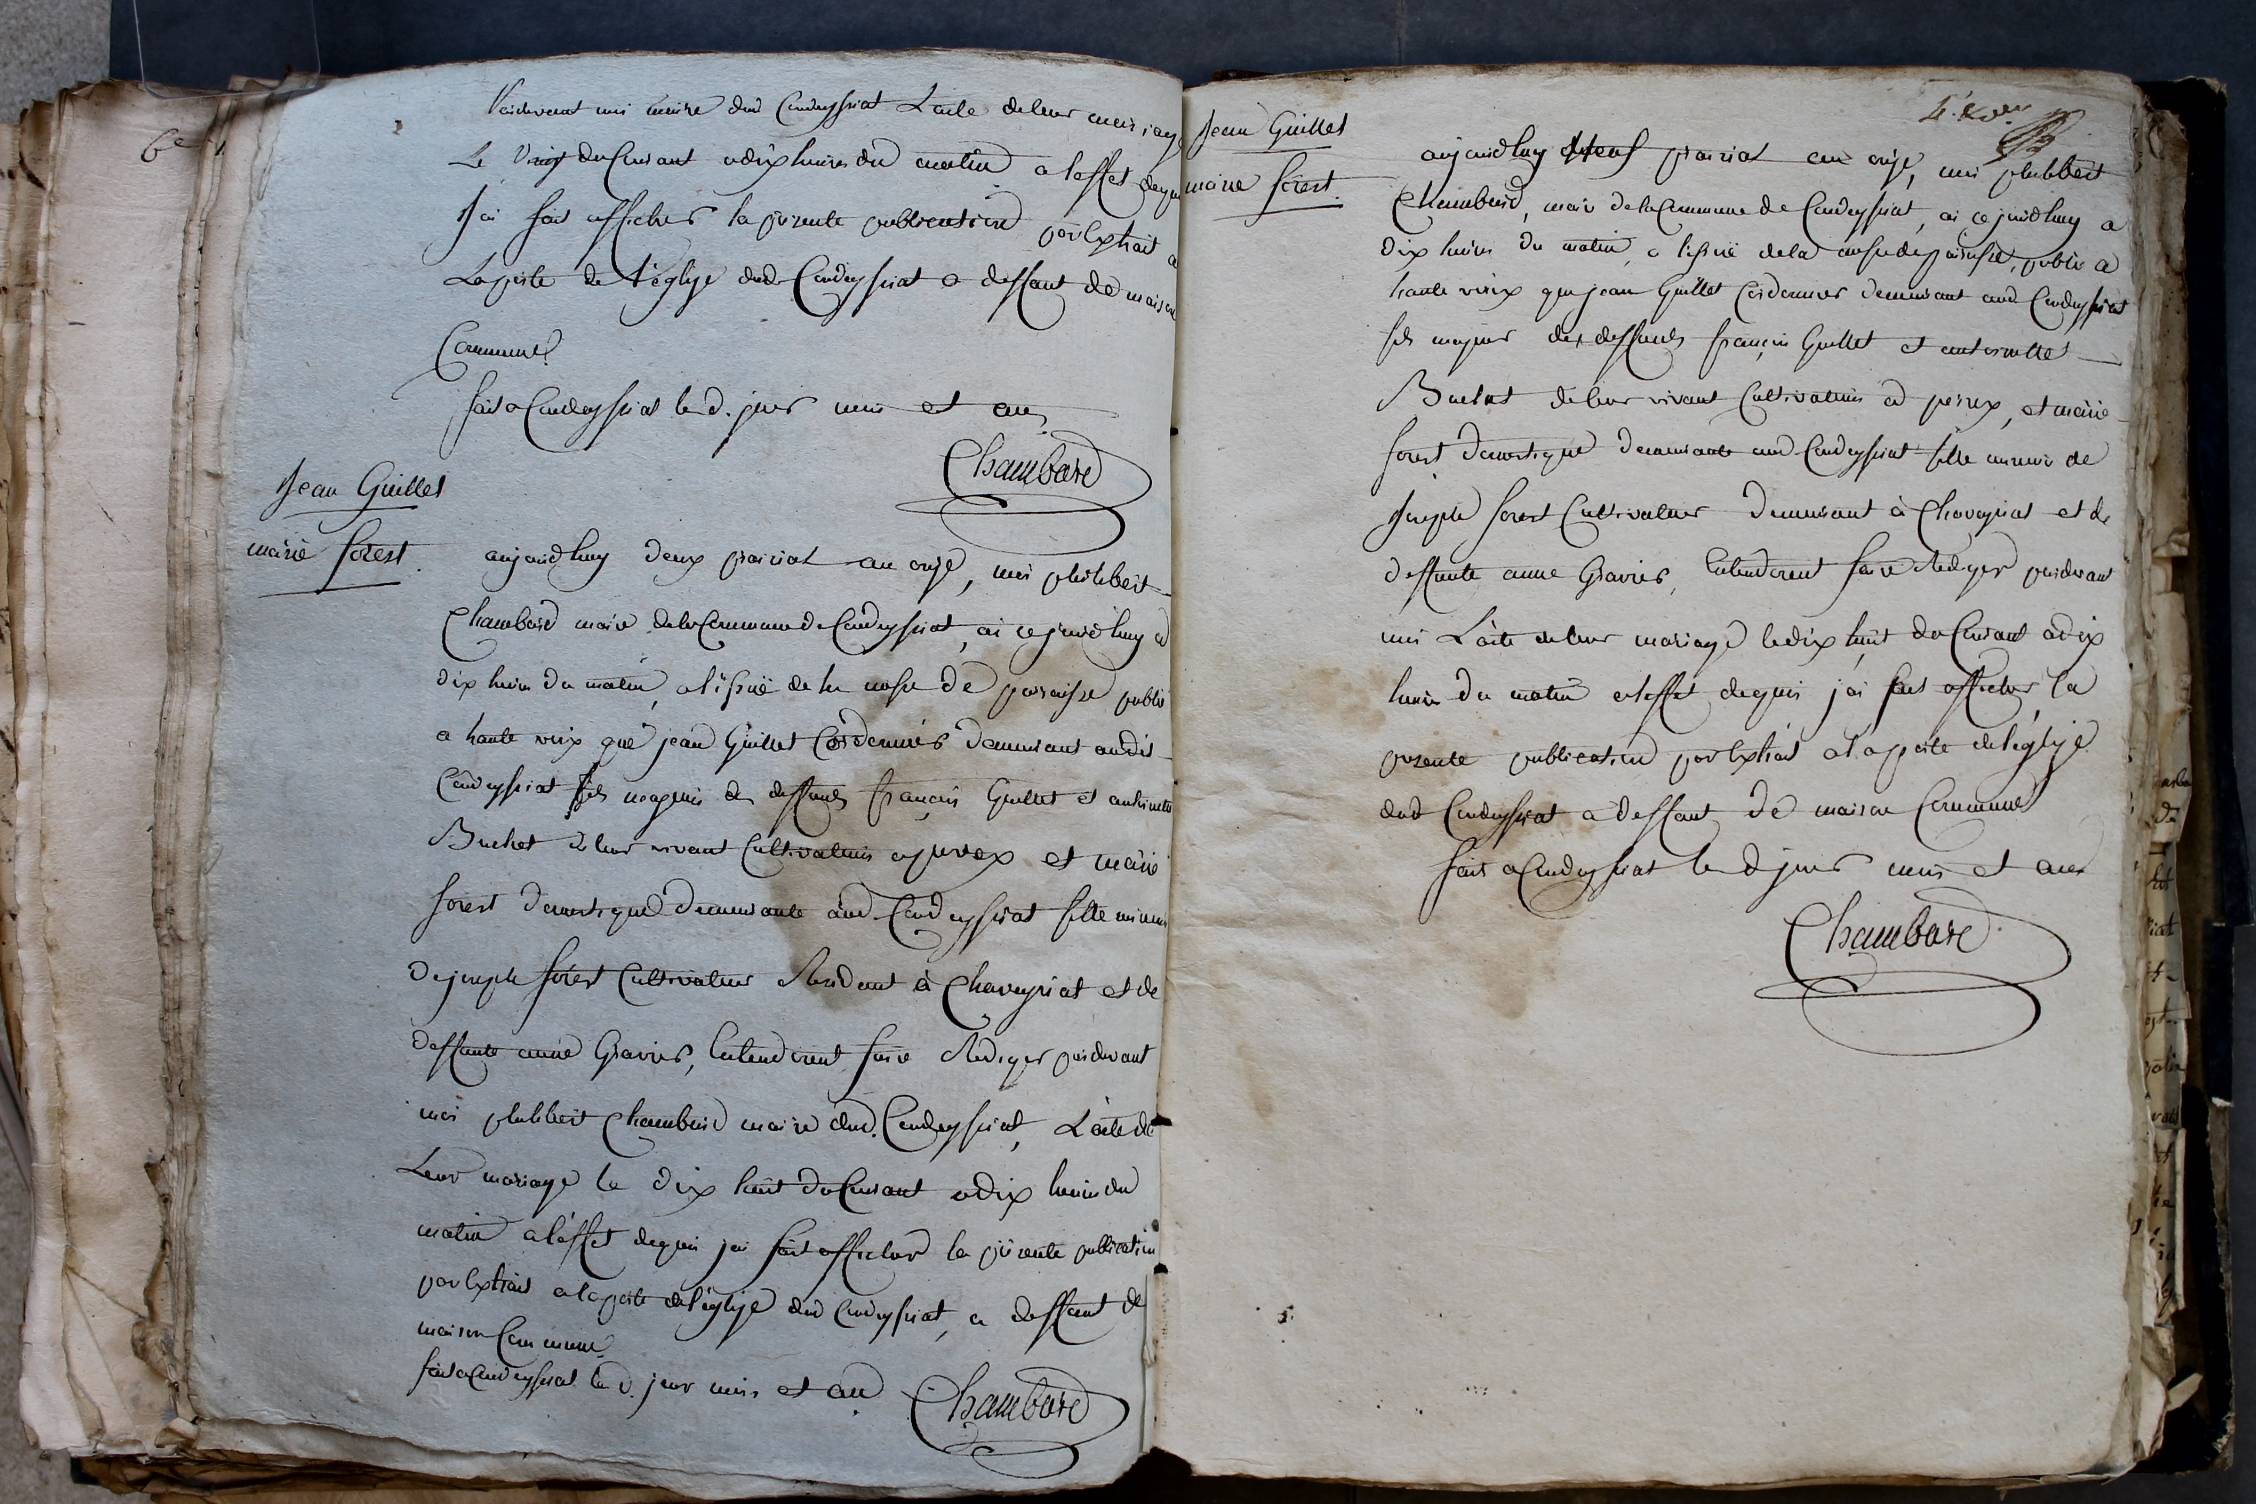 6e
Pardevant moi maire dud Condeyssiat L'acte de leur mariage
Le vingt du Courant a dix heures du matin a l'effet de quoi
J'ai fait afficher la présente publication par Extrait a
La porte de l'église dud Condeyssiat a deffaut de maison
Commune
fait a Condeyssiat le d. jour mois et an
Chambard
Jean Guillet
marie forest.
aujourd'huy deux prairial an onze, moi philibert
Chambard maire de la Commune de Condeyssiat, ai ce jourd'huy a
dix heures du matin, a l'issuë de la messe de paroisse publié
a haute voix que jean Guillet Cordonnier demeurant audit
Condeyssiat fils majeur des deffunts françois Guillet et antoinette
Buchet de leur vivant Cultivateurs a perex et marie
forest domestique demeurante aud Condeyssiat fille mineure
de joseph forest Cultivateur Résidant à Chaveyriat et de
deffunte anne Gravier, Entendirent faire Rediger pardevant
moi philibert Chambard maire dud. Condeyssiat, L'acte de
Leur mariage le dix huit du Courant a dix heures du
matin a l'effet de quoi jai fait afficher la présente publication
par Extrait a la porte de l'église dud Condeyssiat, a deffaut de
maison Commune
fait a Condeyssiat le d. jour mois et an
Chambard
Jean Guillet
marie forest.
aujourd'huy Neuf prairial an onze, moi philibert
Chambard, maire de la Commune de Condeyssiat, ai ce jourd'huy a
dix heures du matin, a l'issuë de la messe de paroisse, publié a
haute voix que jean Guillet Cordonnier demeurant aud Condeyssiat
fils majeur des deffunts françois Guillet et antoinette
Buchet de leur vivant Cultivateurs a perex, et marie
forest domestique demeurante aud Condeyssiat fille mineure de
Joseph forest Cultivateur demeurant à Chaveyriat et de
deffunte anne Gravier, Entendirent faire Rediger pardevant
moi L'acte de leur mariage le dix huit du Courant a dix
heures du matin a l'effet de quoi j'ai fait afficher la
présente publication par Extrait a la porte de l'église
dud Condeyssiat a deffaut de maison Commune
fait a Condeyssiat le d jour mois et an
Chambard